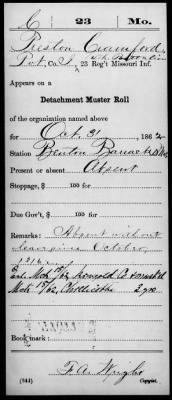 C | 23 | Mo.
Preston Crawford
Pvt, Co. I, 23 Reg't Missouri Inf.
Appears on a
Detachment Muster Roll
of the organization named above
for Oct. 31, 1862
Station Benton Barracks Mo.
Present or absent Absent
Stopage, $ 100 for
Due Gov't, $ 100 for
Remarks: Absent without
leave since October,
Mch 15/62, Chillicothe 3 yrs.
Book mark:
F.A. Wright
(344) Copyist.